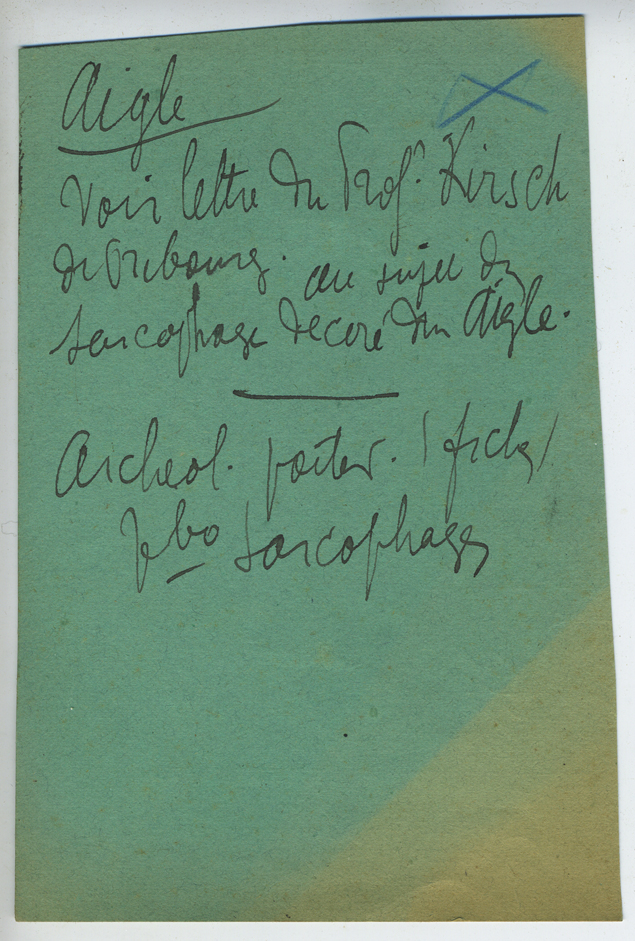 Aigle
Voir lettre du Prof. Kirsch
de Fribourg. au sujet du
sarcophage decoré d'un Aigle.
Archeol. (fiches)
Vbo Sarcophages